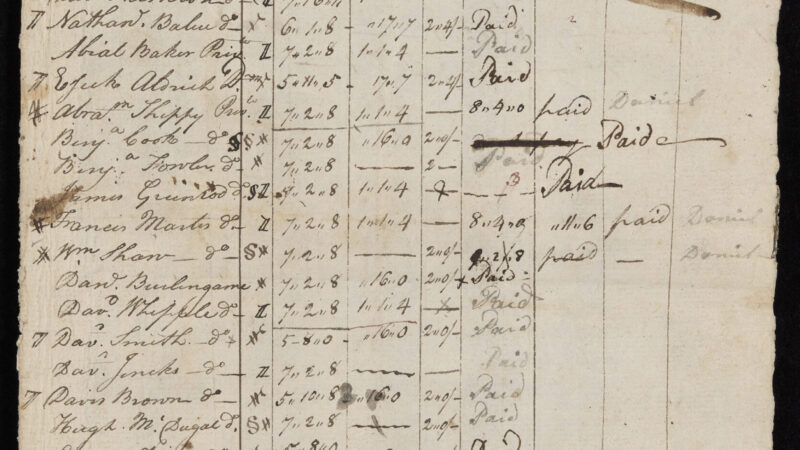 Nathan. d° 6 „ 1 „ 8 „ 17 „ 7 2 „ 4/- Paid
Abial Baker Priv. II 7 „ 2 „ 8 1 „ 1 „ 4 — Paid
Ezek Aldrich 5 „ 11 „ 5 „ 17 „ 7 2 „ 4/- Paid
# Abram. Shippy Priv. II 7 „ 2 „ 8 1 „ 1 „ 4 — 8 „ 4 „ 0 paid Daniel
Benja Cook — d° S # 7 „ 2 „ 8 „ 16 „ 0 2 „ 0/- Paid
Benja Fowler d° # 7 „ 2 „ 8 — 2 — Paid
James d° S II 7 „ 2 „ 8 1 „ 1 „ 4 3 Paid
# Francis d° II 7 „ 2 „ 8 1 „ 1 „ 4 — 8 „ 4 „ 0 „ 11 „ 6 paid Daniel
# Wm Shaw — d° S # 7 „ 2 „ 8 — 2 „ 0/- paid — Daniel
Dand. Burlingame # 7 „ 2 „ 8 „ 16 „ 0 2 „ 0/- Paid
Davd Whipple d° II 7 „ 2 „ 8 1 „ 1 „ 4 Paid
Davd. Smith — d° 5 - 8 „ 0 „ 16 „ 0 2 „ 0/- Paid
Davd. Jencks — d° II 7 „ 2 „ 8 — — Paid
Davis Brown — d° 5 „ 10 „ 8 „ 16 „ 0 2 „ 0/- Paid
Hugh Mc Dugal d°. S # 7 „ 2 „ 8 2 „ 0/- Paid